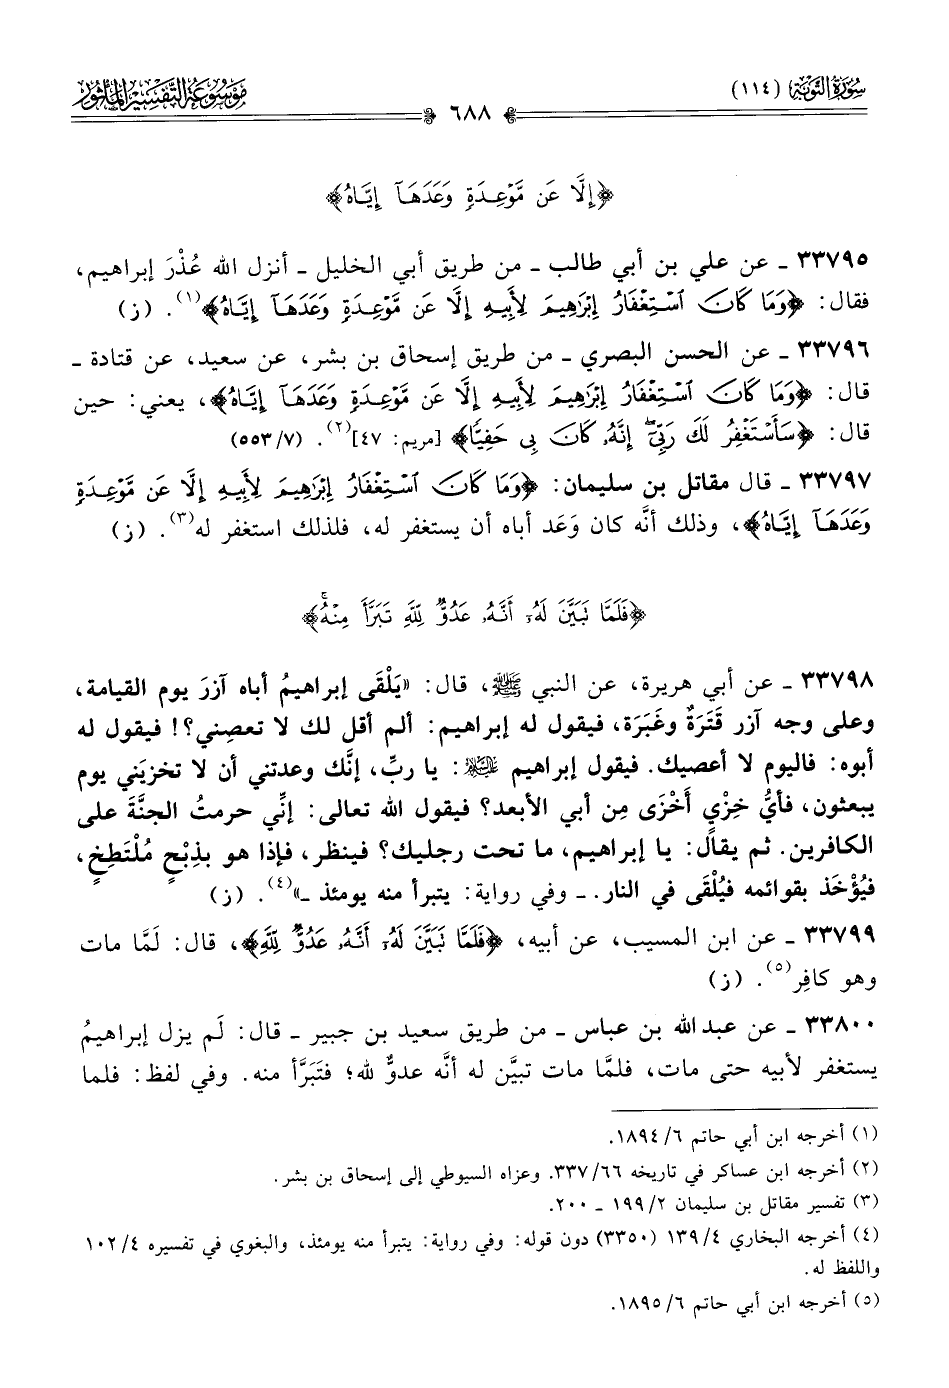 سورة التوبة (١١٤)
٦٨٨
موسوعة التفسير المأثور
﴿إِلَّا عَن مَّوْعِدَةٍ وَعَدَهَآ إِيَّاهُ﴾
٣٣٧٩٥ ـ عن علي بن أبي طالب ـ من طريق أبي الخليل ـ أنزل الله عُذْرَ إبراهيم،
فقال: ﴿وَمَا كَانَ ٱسْتِغْفَارُ إِبْرَٰهِيمَ لِأَبِيهِ إِلَّا عَن مَّوْعِدَةٍ وَعَدَهَآ إِيَّاهُ﴾(١). (ز)
٣٣٧٩٦ ـ عن الحسن البصري ـ من طريق إسحاق بن بشر، عن سعيد، عن قتادة ـ
قال: ﴿وَمَا كَانَ ٱسْتِغْفَارُ إِبْرَٰهِيمَ لِأَبِيهِ إِلَّا عَن مَّوْعِدَةٍ وَعَدَهَآ إِيَّاهُ﴾، يعني: حين
قال: ﴿سَأَسْتَغْفِرُ لَكَ رَبِّىٓ ۖ إِنَّهُۥ كَانَ بِى حَفِيًّا﴾ [مريم: ٤٧](٢). (٥٥٣/٧)
٣٣٧٩٧ ـ قال مقاتل بن سليمان: ﴿وَمَا كَانَ ٱسْتِغْفَارُ إِبْرَٰهِيمَ لِأَبِيهِ إِلَّا عَن مَّوْعِدَةٍ
وَعَدَهَآ إِيَّاهُ﴾، وذلك أنَّه كان وَعَد أباه أن يستغفر له، فلذلك استغفر له(٣). (ز)
﴿فَلَمَّا تَبَيَّنَ لَهُۥٓ أَنَّهُۥ عَدُوٌّ لِّلَّهِ تَبَرَّأَ مِنْهُ ۚ﴾
٣٣٧٩٨ ـ عن أبي هريرة، عن النبي ﷺ، قال: «يَلْقَى إبراهيمُ أباه آزرَ يوم القيامة،
وعلى وجه آزر قَتَرَةٌ وغَبَرَة، فيقول له إبراهيم: ألم أقل لك لا تعصِني؟! فيقول له
أبوه: فاليوم لا أعصيك. فيقول إبراهيم عليه السلام: يا ربِّ، إنَّك وعدتني أن لا تخزيَني يوم
يبعثون، فأيُّ خِزْيٍ أَخْزَى مِن أبي الأبعد؟ فيقول الله تعالى: إنِّي حرمتُ الجنَّةَ على
الكافرين. ثم يقال: يا إبراهيم، ما تحت رجليك؟ فينظر، فإذا هو بذِبْحٍ مُلْتَطِخٍ،
فيُؤْخَذ بقوائمه فيُلْقَى في النار. ـ وفي رواية: يتبرأ منه يومئذ ـ»(٤). (ز)
٣٣٧٩٩ ـ عن ابن المسيب، عن أبيه، ﴿فَلَمَّا تَبَيَّنَ لَهُۥٓ أَنَّهُۥ عَدُوٌّ لِّلَّهِ﴾، قال: لَمَّا مات
وهو كافِر(٥). (ز)
٣٣٨٠٠ ـ عن عبد الله بن عباس ـ من طريق سعيد بن جبير ـ قال: لَم يزل إبراهيمُ
يستغفر لأبيه حتى مات، فلمَّا مات تبيَّن له أنَّه عدوٌّ لله؛ فتَبَرَّأ منه. وفي لفظ: فلما
(١) أخرجه ابن أبي حاتم ٦/ ١٨٩٤.
(٢) أخرجه ابن عساكر في تاريخه ٦٦/ ٣٣٧. وعزاه السيوطي إلى إسحاق بن بشر.
(٣) تفسير مقاتل بن سليمان ٢/ ١٩٩ ـ ٢٠٠.
(٤) أخرجه البخاري ٤/ ١٣٩ (٣٣٥٠) دون قوله: وفي رواية: يتبرأ منه يومئذ، والبغوي في تفسيره ٤/ ١٠٢
واللفظ له.
(٥) أخرجه ابن أبي حاتم ٦/ ١٨٩٥.